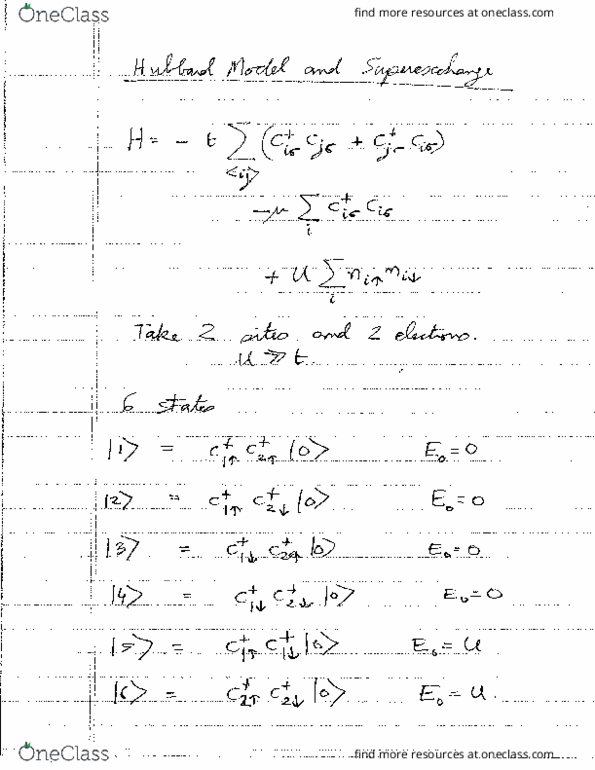 OneClass
find more resources at oneclass.com
Hubbard Model and Superexchange
H = - t Σ (c⁺iσ cjσ + c⁺jσ ciσ)
<ij>
-μ Σ c⁺iσ ciσ
i
+ U Σ ni↑ ni↓
i
Take 2 sites and 2 electrons.
U >> t
6 states
|1> = c⁺1↑ c⁺2↑ |0> E₀=0
|2> = c⁺1↑ c⁺2↓ |0> E₀=0
|3> = c⁺1↓ c⁺2↑ |0> E₀=0
|4> = c⁺1↓ c⁺2↓ |0> E₀=0
|5> = c⁺1↑ c⁺1↓ |0> E₀=U
|6> = c⁺2↑ c⁺2↓ |0> E₀=U.
OneClass
find more resources at oneclass.com